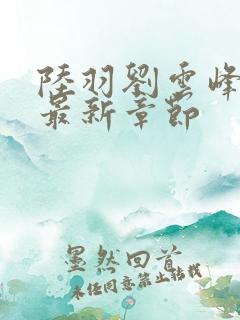 陸羽劉雲峰
最新章節
墨然回首
未经同意禁止转载